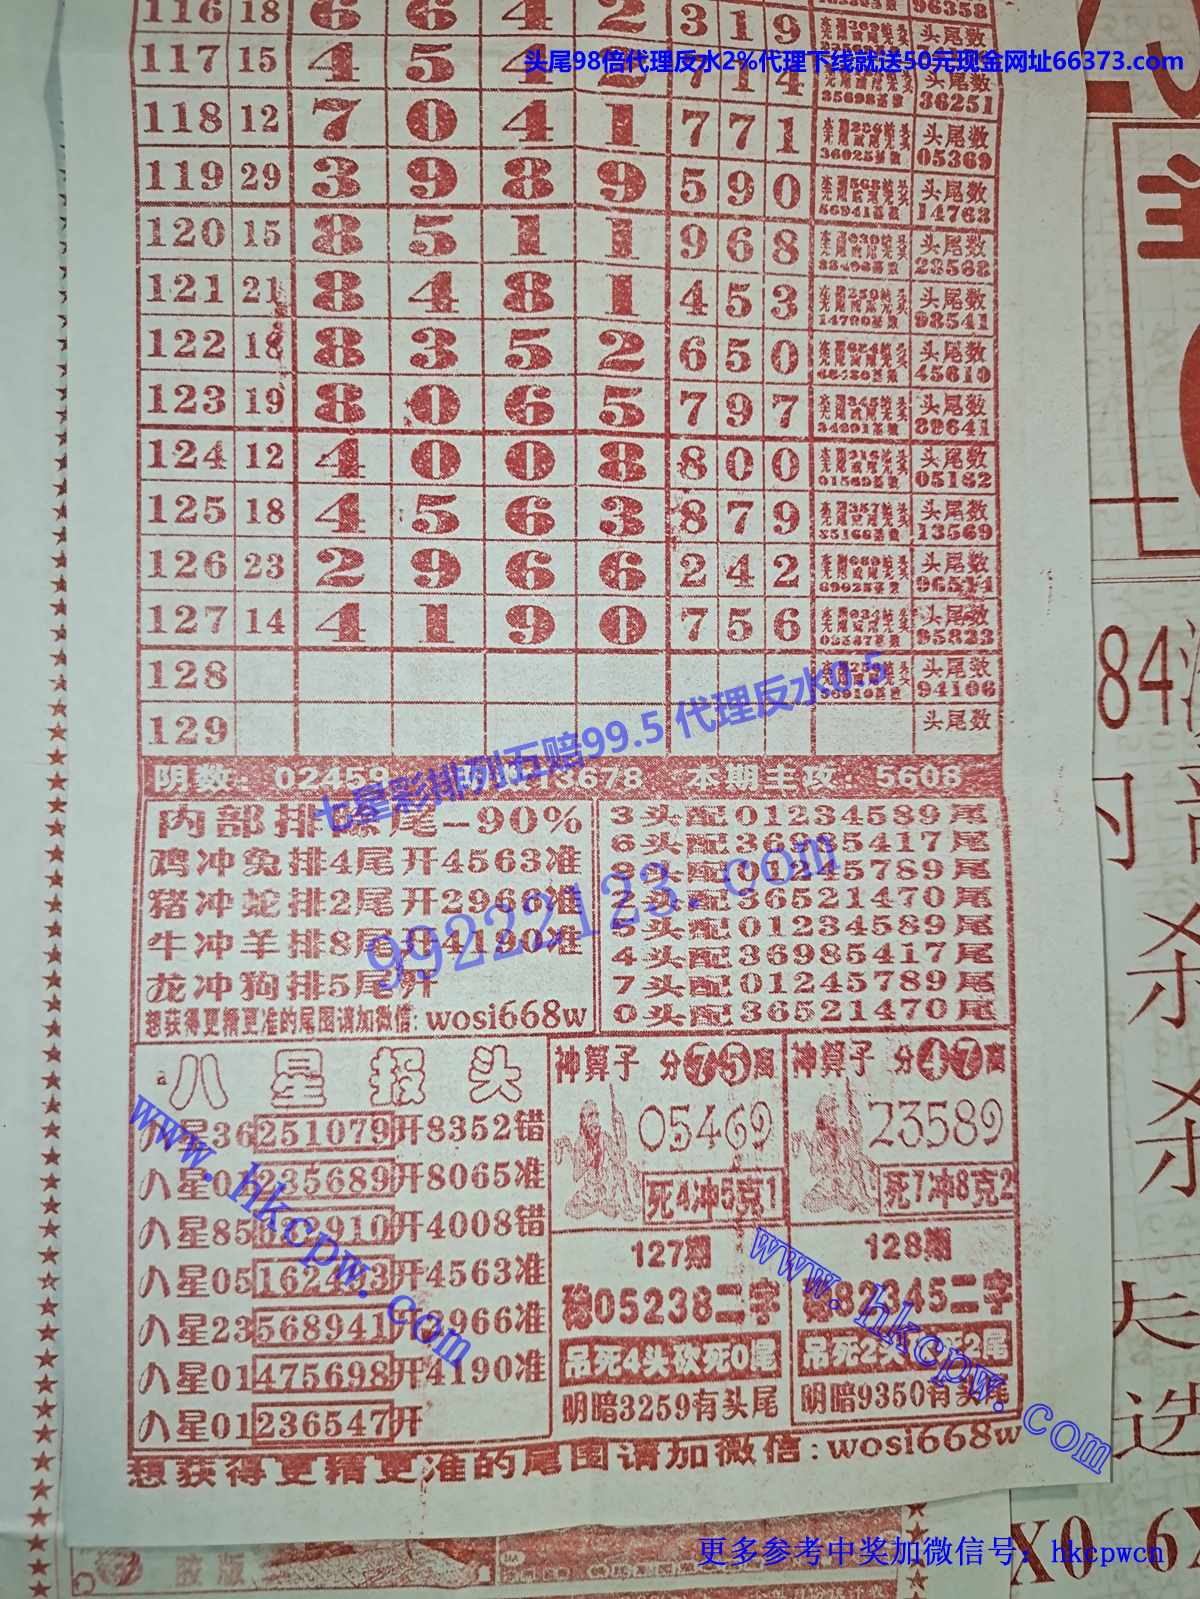 116 18 6 6 4 2 3 1 9 96358
头尾98倍代理反水2%代理下线就送50元现金网址66373.com
117 15 4 5 4 2 7 1 4 头尾数 36251
118 12 7 0 4 1 7 7 1 头尾数 05369
119 29 3 9 8 9 5 9 0 头尾数 14763
120 15 8 5 1 1 9 6 8 头尾数
121 21 8 4 8 1 4 5 3 头尾数 98541
122 18 8 3 5 2 6 5 0 头尾数 45610
123 19 8 0 6 5 7 9 7 头尾数 89641
124 12 4 0 0 8 8 0 0 头尾数 05182
125 18 4 5 6 3 8 7 9 头尾数 13569
126 23 2 9 6 6 2 4 2 头尾数 96514
127 14 4 1 9 0 7 5 6 头尾数 95823
128 头尾数 94106
129 头尾数
七星彩排列五赔99.5 代理反水0.5
阴数: 02459 13678 本期主攻: 5608
内部排除尾-90%
鸡冲兔排4尾开4563准
猪冲蛇排2尾开2966准
牛冲羊排8尾开4190准
龙冲狗排5尾开
想获得更精更准的尾图请加微信: wosi668w
99222123.com
3头配01234589尾
6头配36985417尾
8头配01245789尾
2头配36521470尾
5头配01234589尾
4头配36985417尾
7头配01245789尾
0头配36521470尾
八星报头
八星36251079开8352错
八星01235689开8065准
八星85 910开4008错
八星05162433开4563准
八星23568941开2966准
八星01475698开4190准
八星01236547开
www.hkcpw.com
神算子 分75离
05469
死4冲5克1
127期
稳05238二字
吊死4头砍死0尾
明暗3259有头尾
神算子 分47离
23589
死7冲8克2
128期
稳82345二字
吊死2头 死2尾
明暗9350有头尾
www.hkcpw.com
想获得更精更准的尾图请加微信: wosi668w
84
杀
杀
选
X0 6X
更多参考中奖加微信号: hkcpwcn